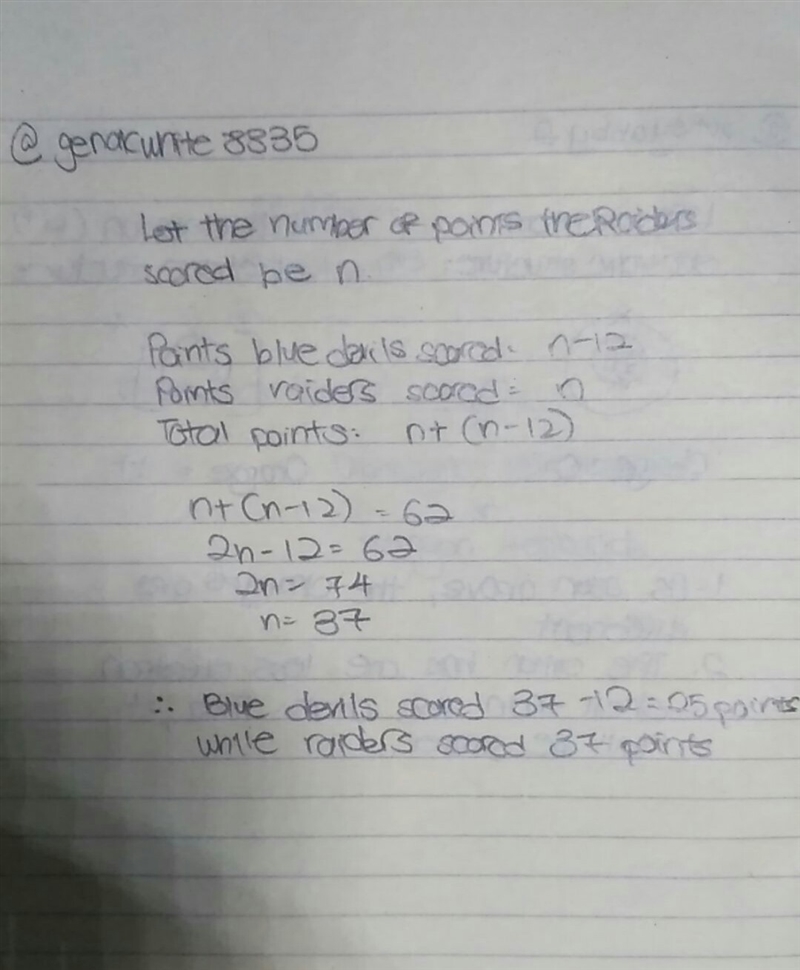 @ genakunte 8835
Let the number of points the Raiders
scored be n.
Points blue devils scored: n-12
Points raiders scored = n
Total points: n+(n-12)
n+(n-12) = 62
2n-12 = 62
2n = 74
n = 37
∴ Blue devils scored 37-12 = 25 points
while raiders scored 37 points